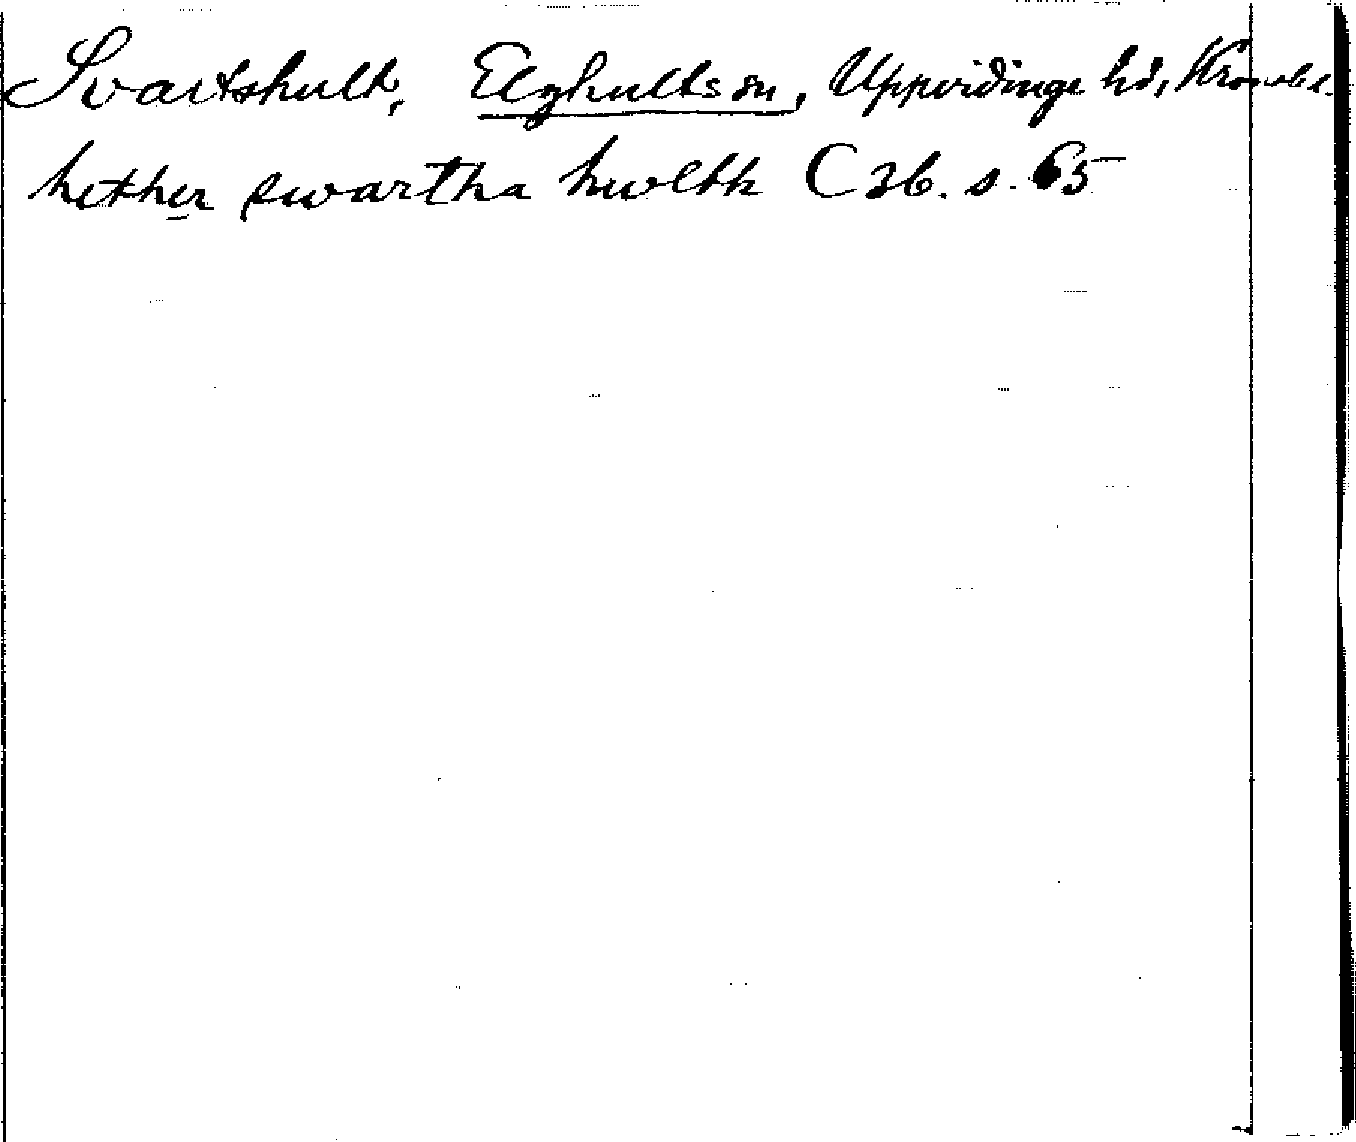 Svartshult, Elghults sn, Uppvidinge hd, Kronobl.
hether swartha hwltk C 36. s. 65